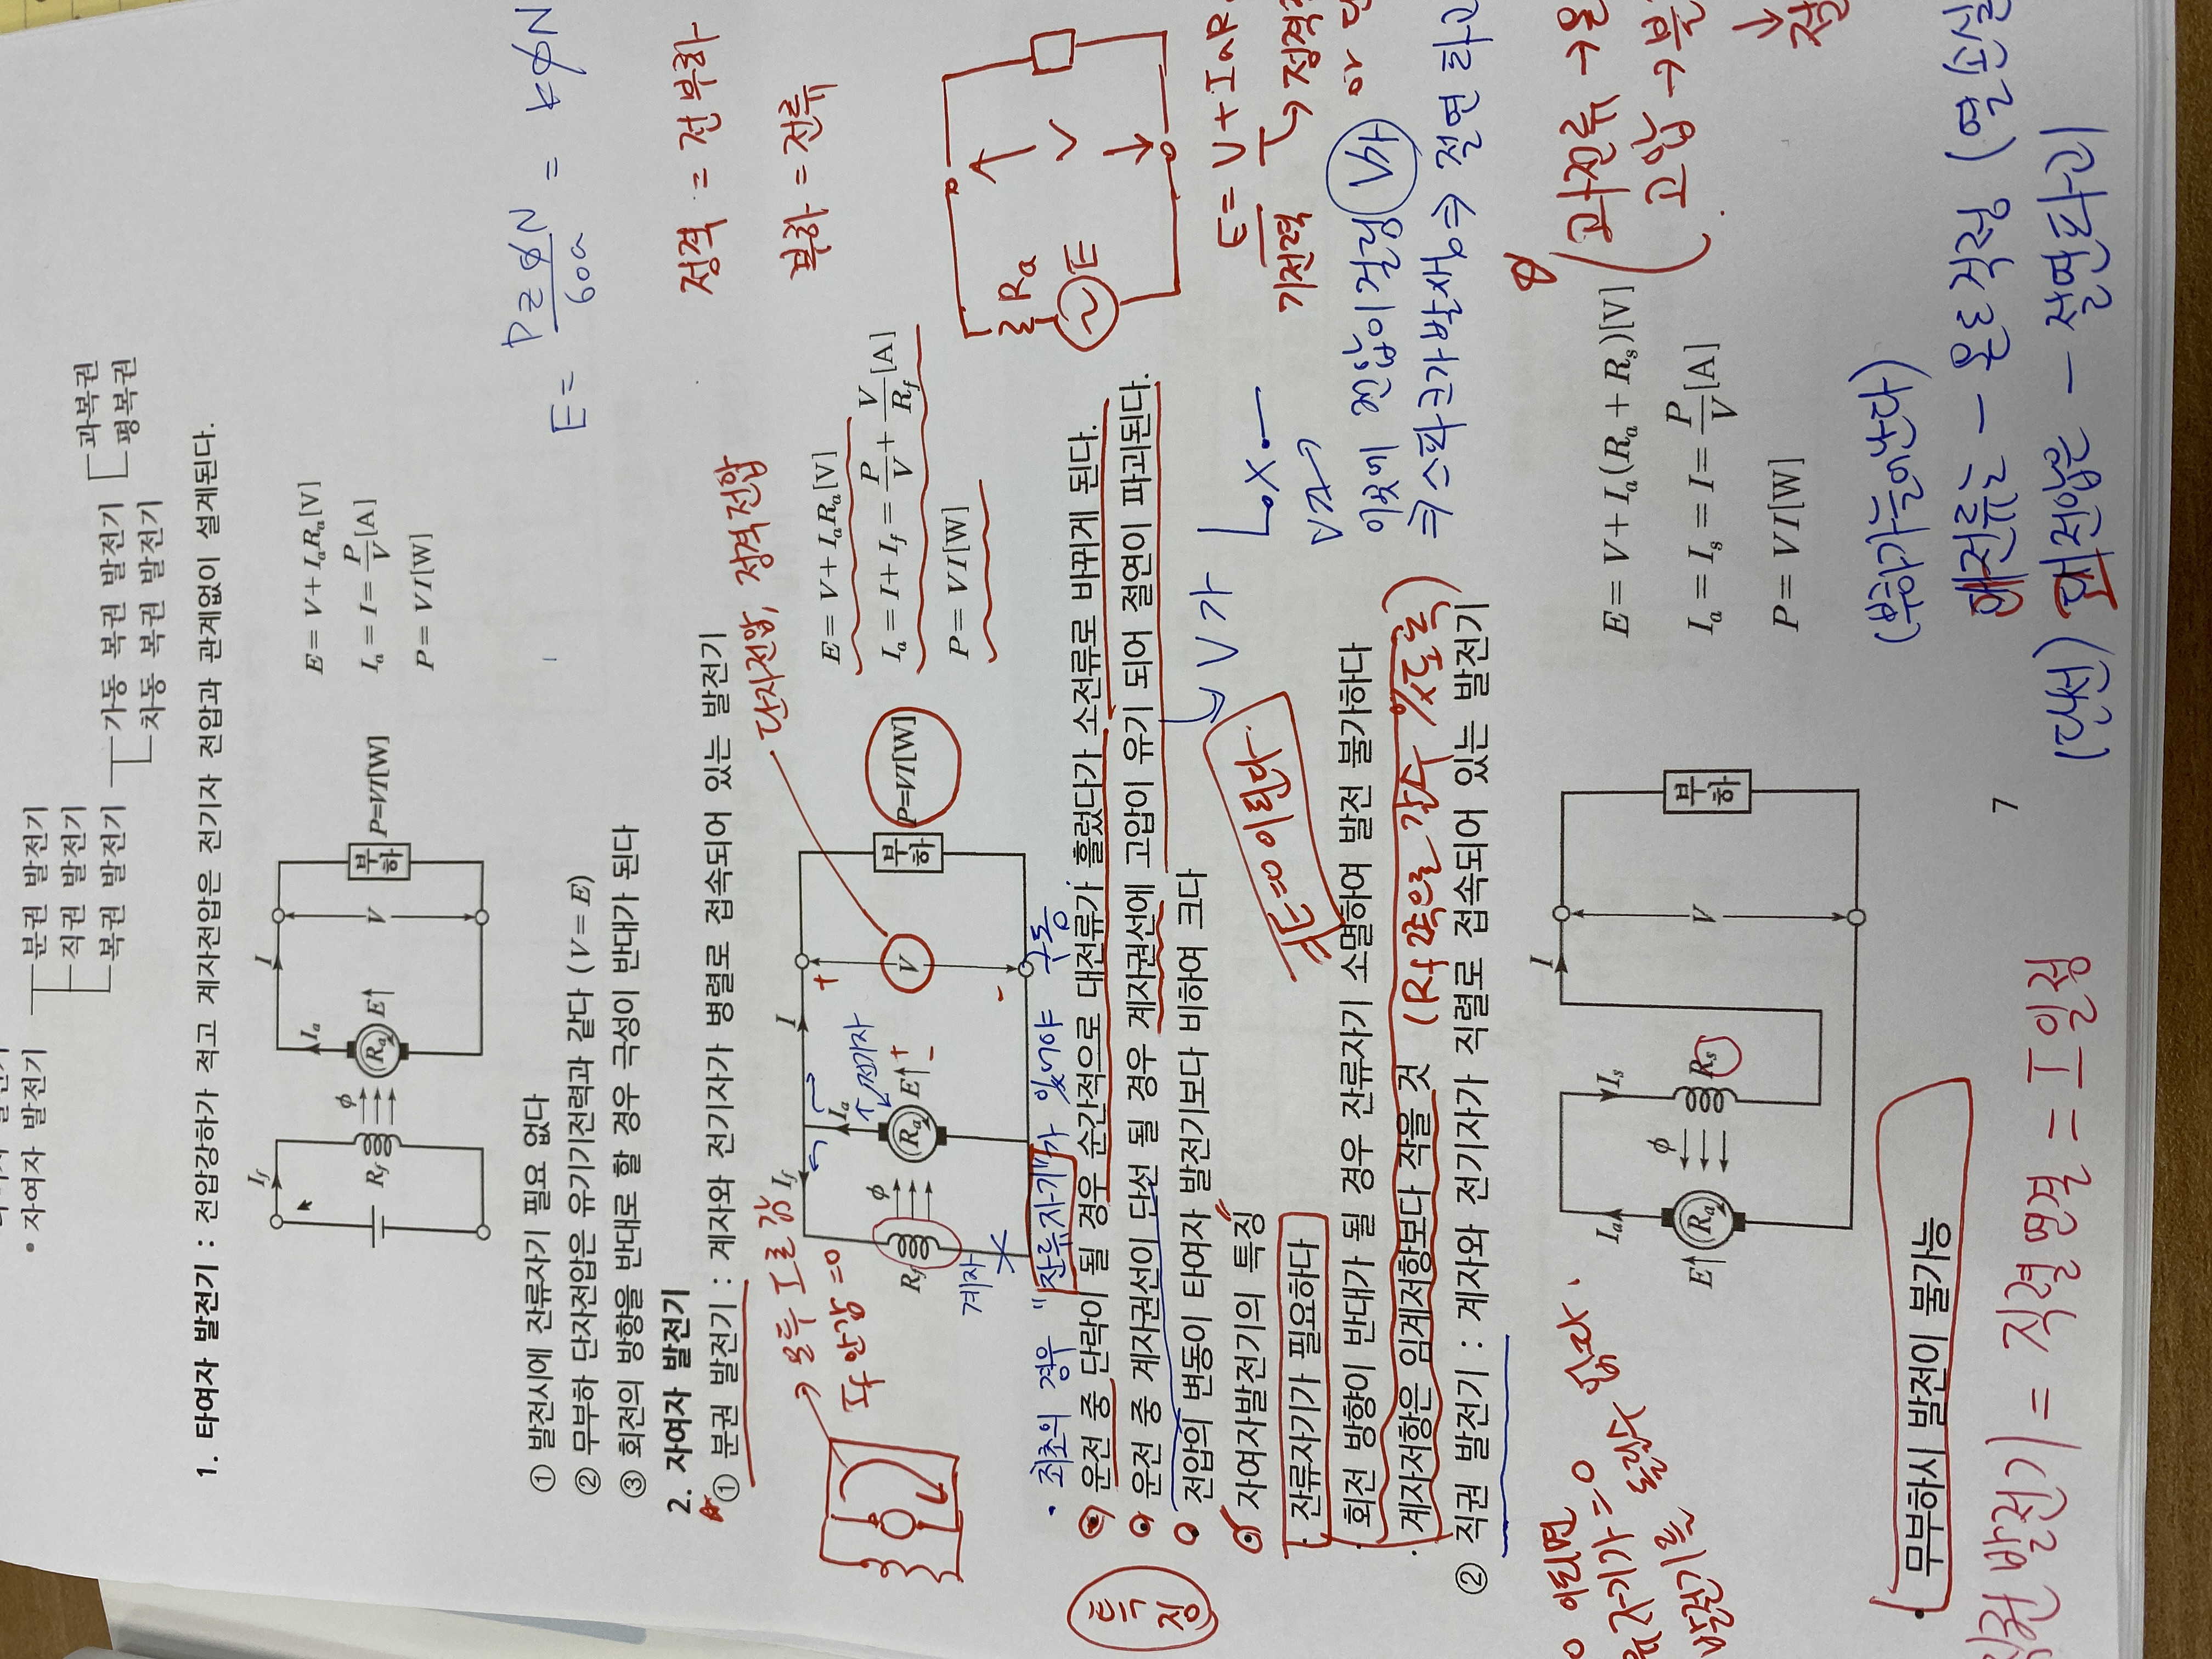 • 자여자 발전기
분권 발전기
직권 발전기
복권 발전기
가동 복권 발전기
차동 복권 발전기
과복권
평복권
1. 타여자 발전기 : 전압강하가 적고 계자전압은 전기자 전압과 관계없이 설계된다.
I_f
R_f
φ
I_a
R_a
E
I
V
부하
P=VI[W]
E = V + I_a R_a [V]
I_a = I = P/V [A]
P = VI [W]
① 발전시에 잔류자기 필요 없다
② 무부하 단자전압은 유기기전력과 같다 (V = E)
③ 회전의 방향을 반대로 할 경우 극성이 반대가 된다
E = PZφN/60a = kφN
2. 자여자 발전기
① 분권 발전기 : 계자와 전기자가 병렬로 접속되어 있는 발전기
정격 = 전부하
부하 = 전류
단자전압, 정격전압
→ 모두 I로 감
If 안감 = 0
I_f
R_f
계자
φ
I_a
전기자
R_a
E
+
-
I
+
V
-
부하
P=VI[W]
E = V + I_a R_a [V]
I_a = I + I_f = P/V + V/R_f [A]
P = VI [W]
Ra
E
V
E = V + IaR
기전력
→ 정격
or 단
• 최초의 경우 "잔류자기"가 있어야 구동
특징
운전 중 단락이 될 경우 순간적으로 대전류가 흘렀다가 소전류로 바뀌게 된다.
운전 중 계자권선이 단선 될 경우 계자권선에 고압이 유기 되어 절연이 파괴된다.
전압의 변동이 타여자 발전기보다 비하여 크다
V가
V가
있었에 전압이 걸림 V가
⇒ 스파크가 발생 ⇒ 절연 파괴
자여자발전기의 특징
E=0이 된다
· 잔류자기가 필요하다
· 회전 방향이 반대가 될 경우 잔류자기 소멸하여 발전 불가하다
· 계자저항은 임계저항보다 작을 것 (Rf 값은 작을 수 있도록)
② 직권 발전기 : 계자와 전기자가 직렬로 접속되어 있는 발전기
과전류 →
고압 →
0 이되면
자기가 = 0
발전기를 돌릴수 없다.
E
R_a
I_a
φ
I_s
R_s
I
V
부하
E = V + I_a (R_a + R_s) [V]
I_a = I_s = I = P/V [A]
P = VI [W]
• 무부하시 발전이 불가능
(부하가 늘어난다)
과전류는 - 온도 작정 (열손실
(단선) 과전압은 - 절연파괴
직권 발전기 = 직렬 연결 = I 일정
7